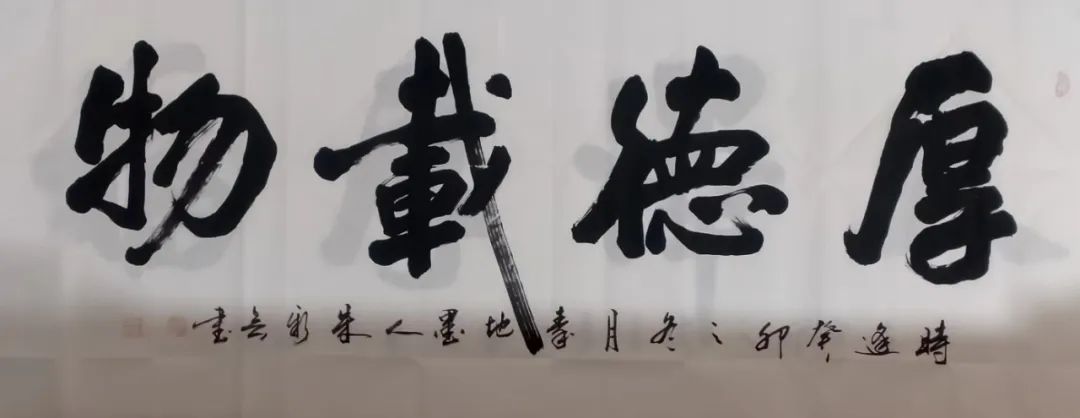 厚德載物
時逢癸卯之冬月秦地墨人朱書